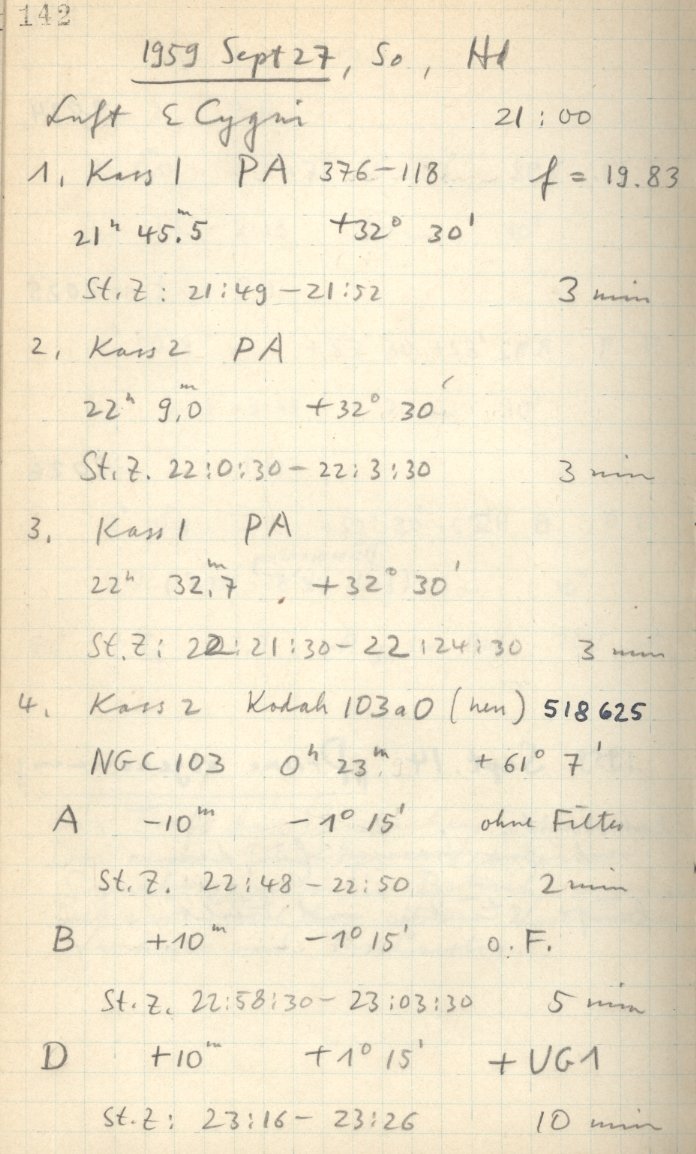 142
1959 Sept 27, So, Hd
Luft ε Cygni 21:00
1. Kass 1 PA 376-118 f = 19.83
21ʰ 45ᵐ.5 +32° 30'
St.Z: 21:49 - 21:52 3 min
2. Kass 2 PA
22ʰ 9ᵐ.0 +32° 30'
St.Z. 22:0:30 - 22:3:30 3 min
3. Kass 1 PA
22ʰ 32ᵐ.7 +32° 30'
St.Z: 22:21:30 - 22:24:30 3 min
4. Kass 2 Kodak 103aO (neu) 518625
NGC 103 0ʰ 23ᵐ. +61° 7'
A -10ᵐ -1° 15' ohne Filter
St.Z. 22:48 - 22:50 2 min
B +10ᵐ -1° 15' o.F.
St.Z. 22:58:30 - 23:03:30 5 min
D +10ᵐ +1° 15' + UG1
St.Z: 23:16 - 23:26 10 min